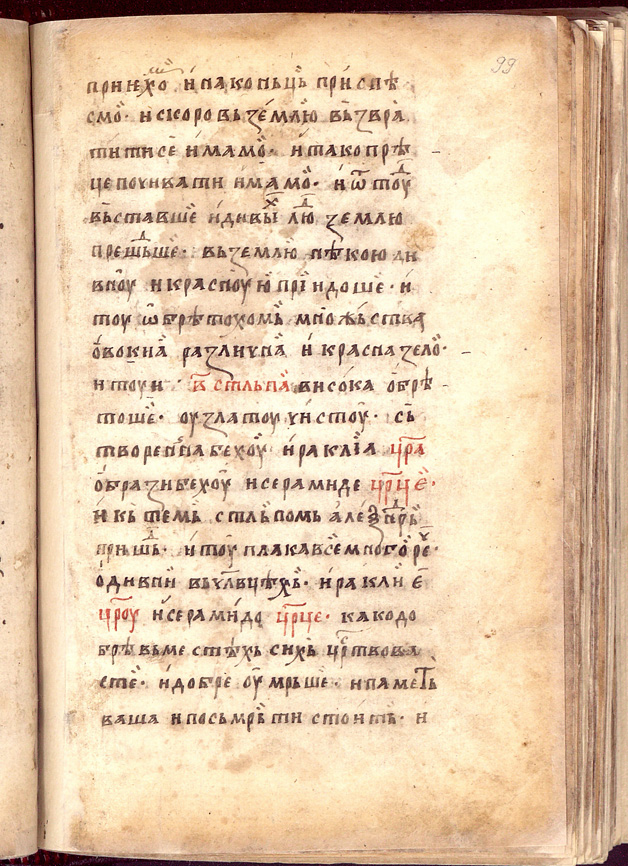 99
принхо̑ и̑наконьць приспѣ
смо̑· искоровьземлю възвра
титисе и̑мамо̑· итакопрѣ
цепоу́нвати и̑мамо̑· и̑ѿтоуⷣ
въставше идивы̏ⷯ люⷣ землю
прешьⷣше· въземлю нѣкоюди
вноу икрасноую прїидоше· и
тоу ѡбрѣтохомь множьства
ѻ̑вокна различна и̑ краснаꙁело̑·
итоуи· в҃ стльпа̏ висока ѻ̑брѣ
тоше̏· оуꙁлатоу чистоу· сь
творен̏набехоу̏· и̑раклїа цр҃а
ѻ̑браꙁибехоу̏ исерамиде цр҃це̏·
и̑ кьтемь стльпомь але́ꙁⷣнрь
пришьⷣ· и̑тоу плакавсемного̏ реⷱ·
ѻ̑дивни выу҆лвцѣхь· и̑ракли е̏
цр҃оу исерами́до цр҃це· какодо
брѣвьместѣхь сихь црⷭ҇твова
сте̏· и̑добре оу̑мрьше· ипаметь
ваша ипосьмрьти стоить· и